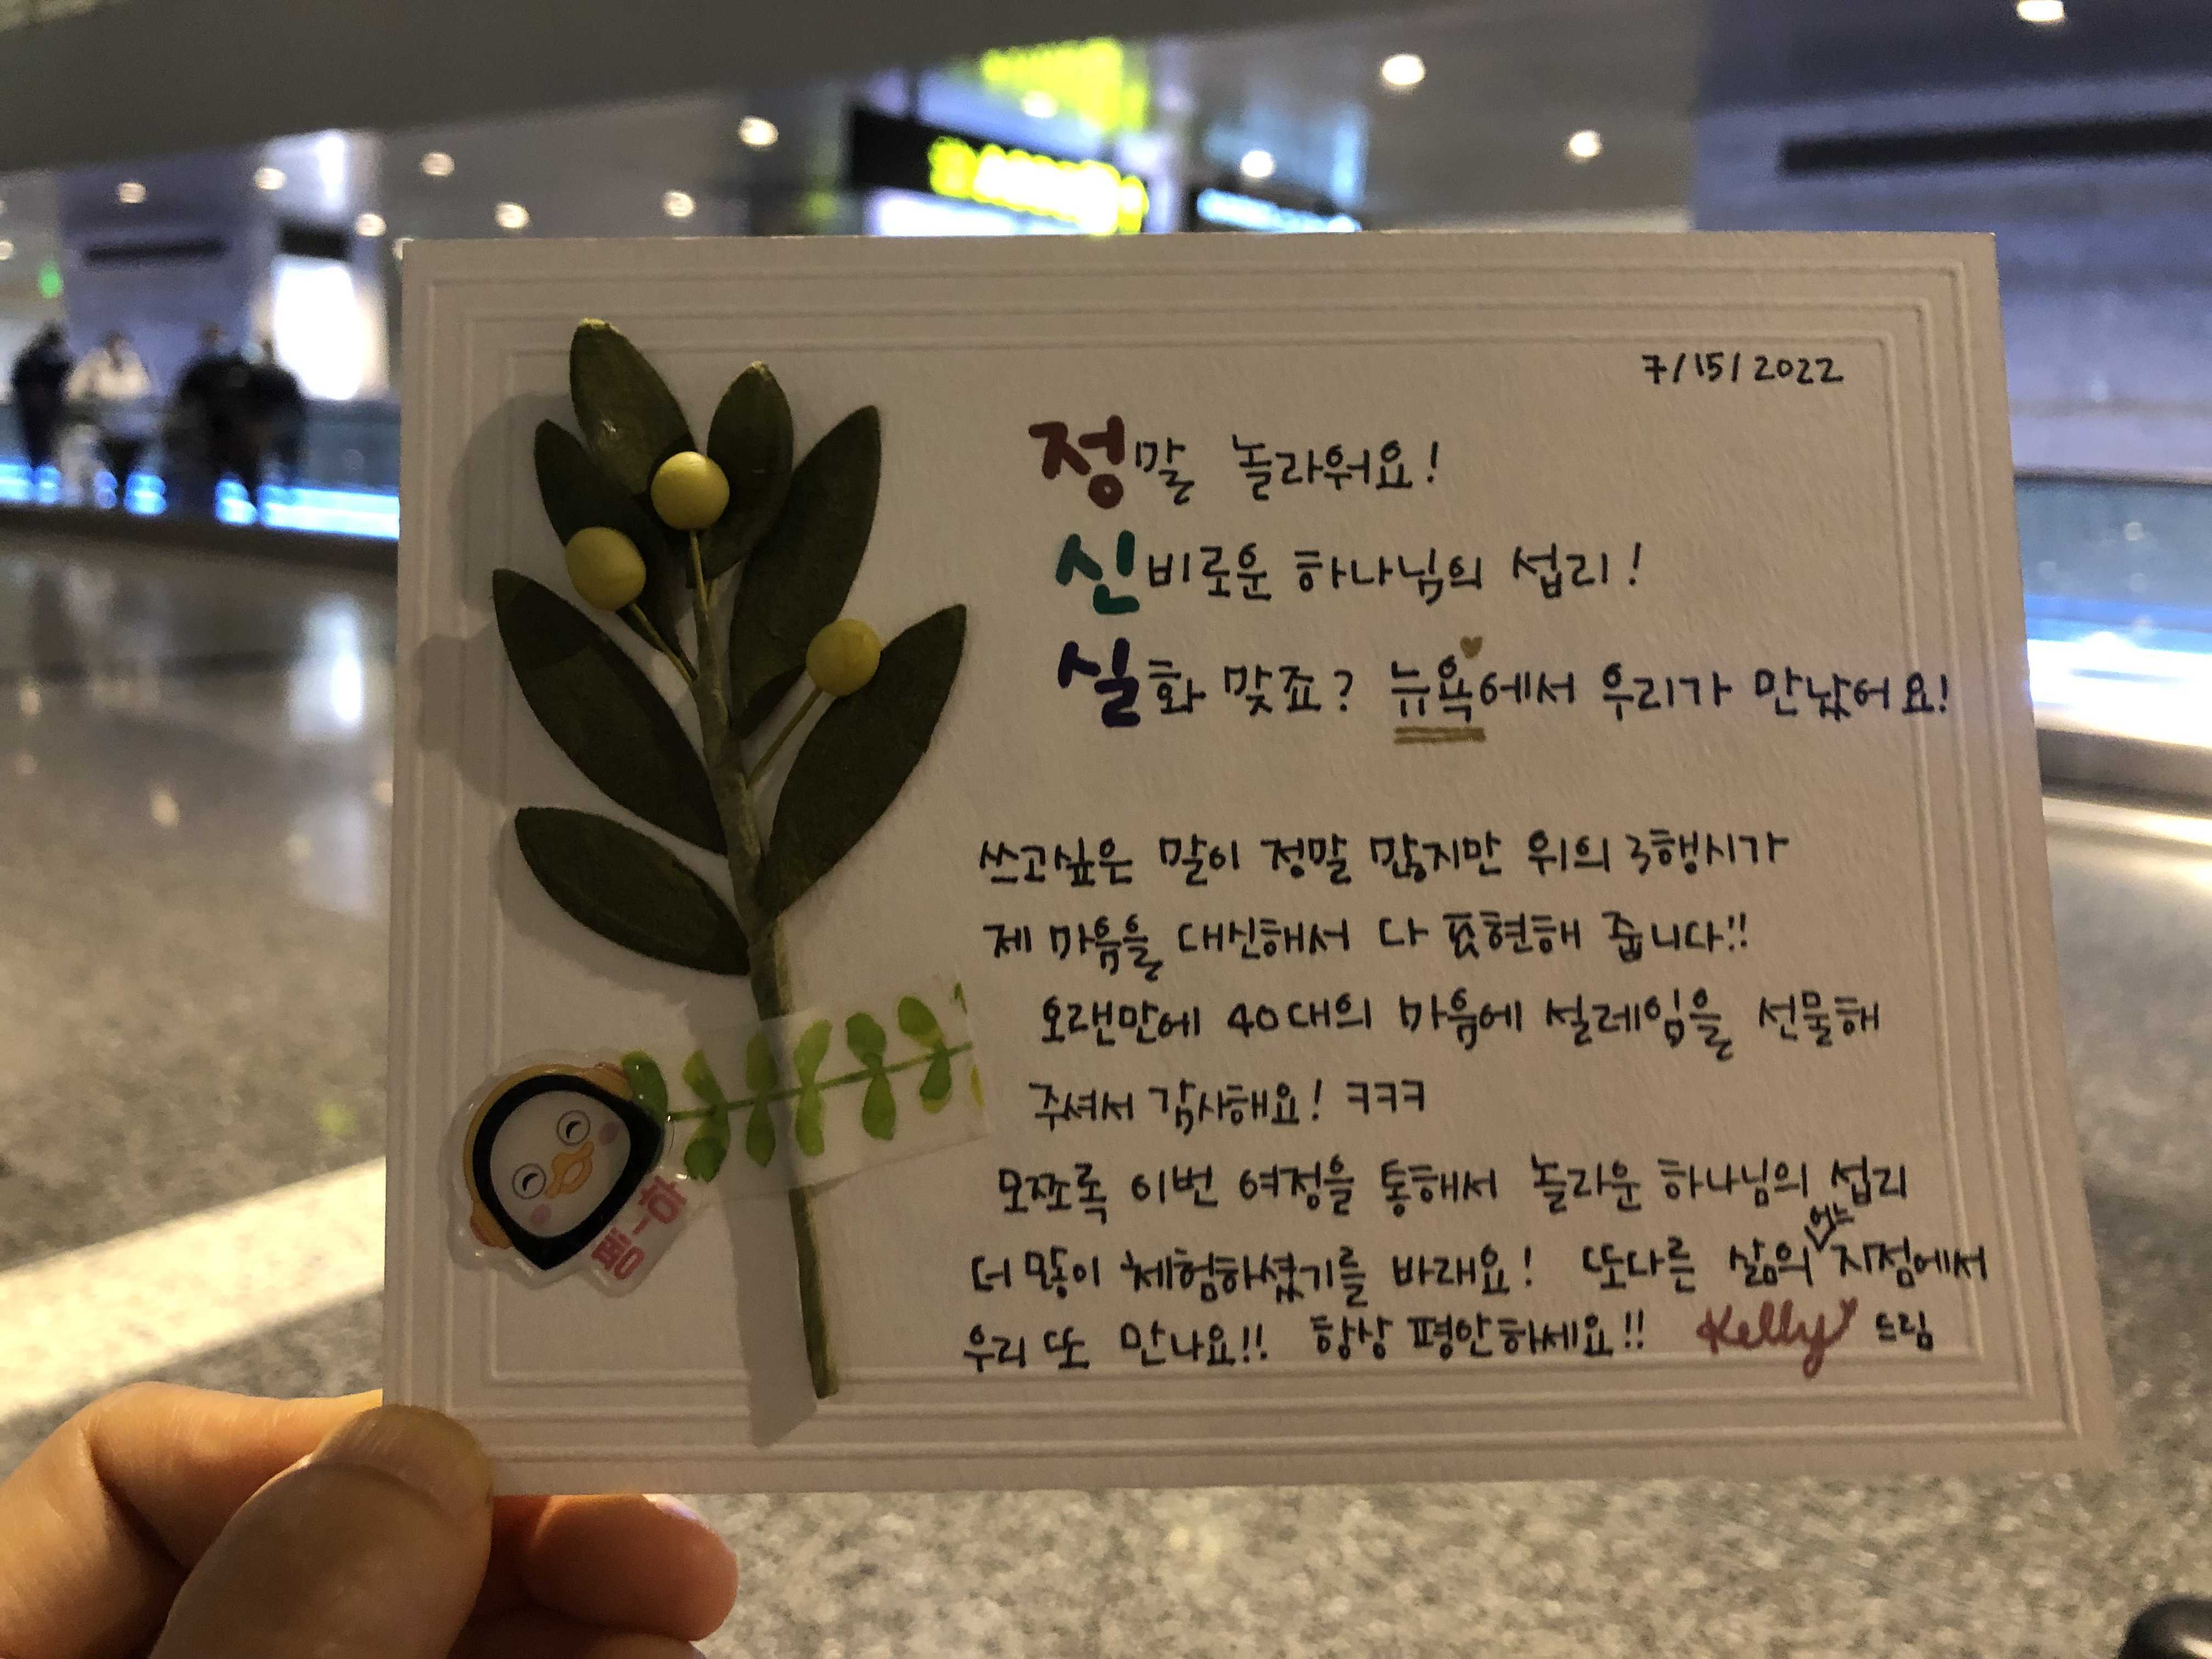 7/15/2022
정말 놀라워요!
신비로운 하나님의 섭리!
실화 맞죠? 뉴욕에서 우리가 만났어요!
쓰고싶은 말이 정말 많지만 위의 3행시가
제 마음을 대신해서 다 표현해 줍니다!!
오랜만에 40대의 마음에 설레임을 선물해
주셔서 감사해요! ㅋㅋㅋ
모쪼록 이번 여정을 통해서 놀라운 하나님의 섭리
더 많이 체험하셨기를 바래요! 또다른 삶의 어느 지점에서
우리 또 만나요!! 항상 평안하세요!! Kelly 드림
펭-하